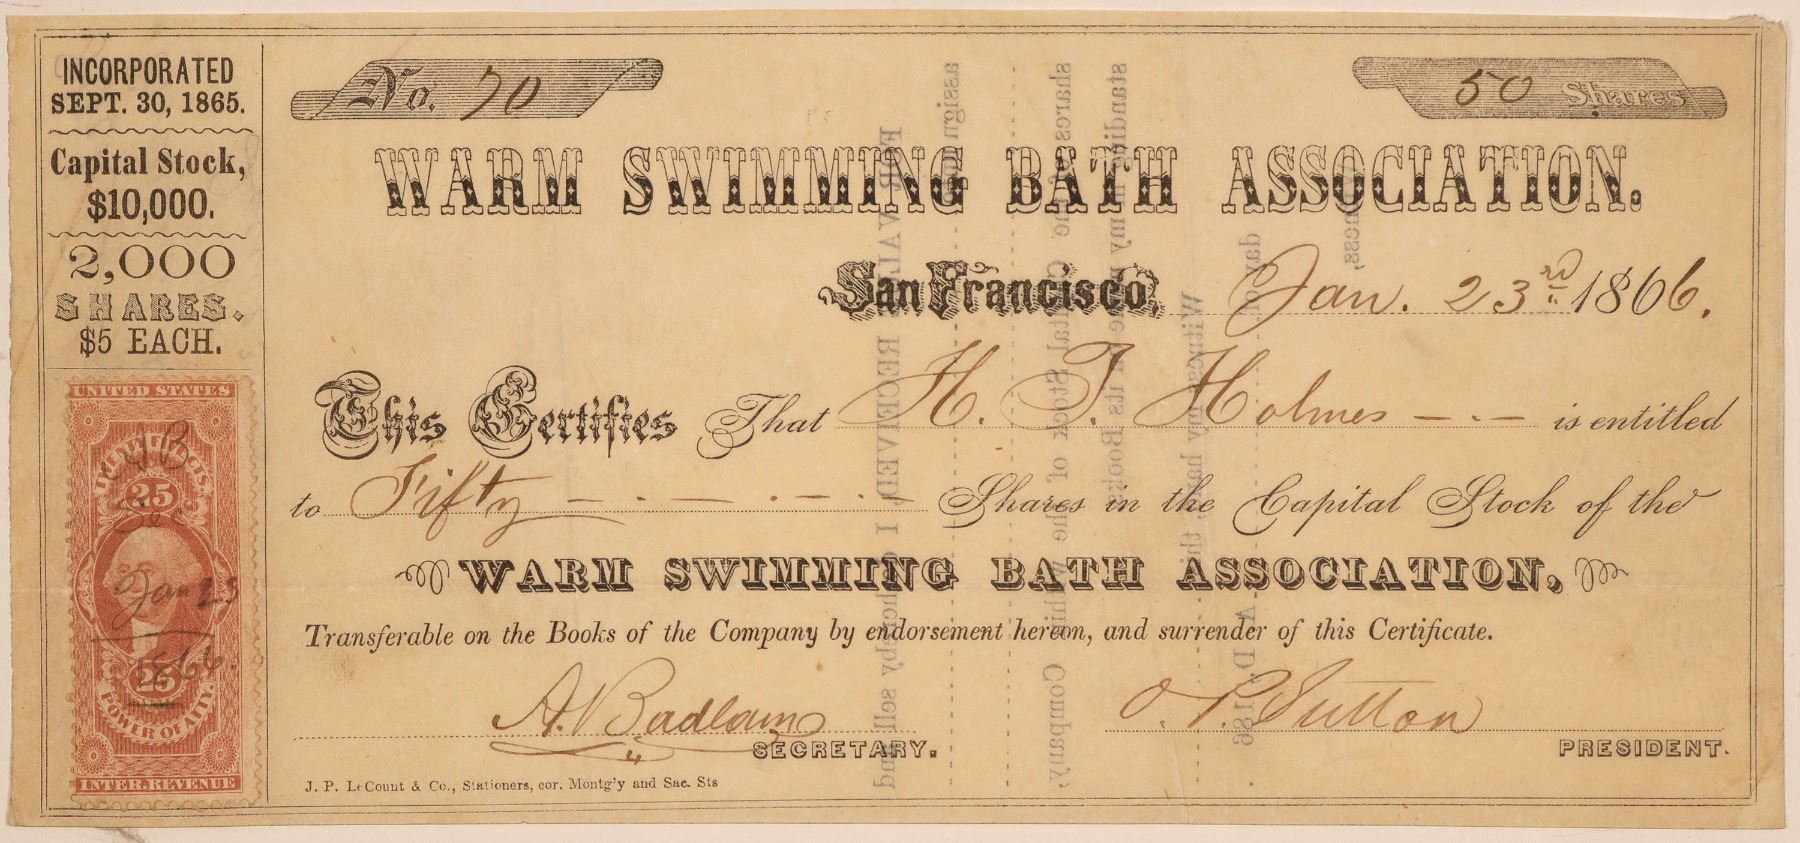 INCORPORATED
SEPT. 30, 1865.
Capital Stock,
$10,000.
2,000
SHARES.
$5 EACH.
UNITED STATES
TWENTY FIVE CTS.
25
A B
Sec
Jan 23
1866.
25
POWER OF AT'Y.
INTER. REVENUE
No. 70
50 Shares
WARM SWIMMING BATH ASSOCIATION.
San Francisco, Jan. 23rd 1866.
This Certifies That H. T. Holmes — · — is entitled
to Fifty — · — · — · — Shares in the Capital Stock of the
WARM SWIMMING BATH ASSOCIATION,
Transferable on the Books of the Company by endorsement hereon, and surrender of this Certificate.
A. Badlam
SECRETARY.
O. P. Sutton
PRESIDENT.
J. P. LeCount & Co., Stationers, cor. Montg'y and Sac. Sts
FOR VALUE RECEIVED, I hereby sell and
assign
shares of the Capital Stock of the within Company,
standing in my name on its Books
Witness my hand, this
day of A. D. 186
Witness,